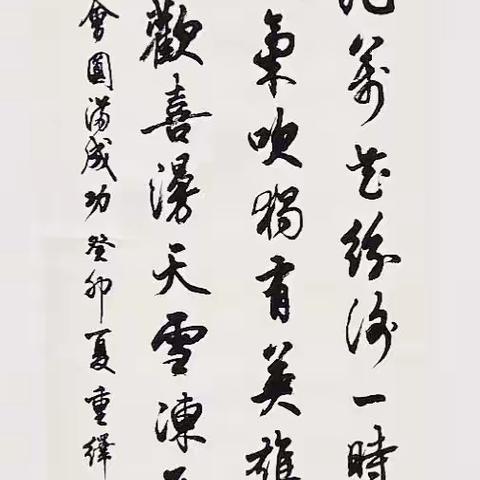 萬花紛謝一時
氣吹獨有英雄
歡喜漫天雪凍
會圓滿成功癸卯夏重繹